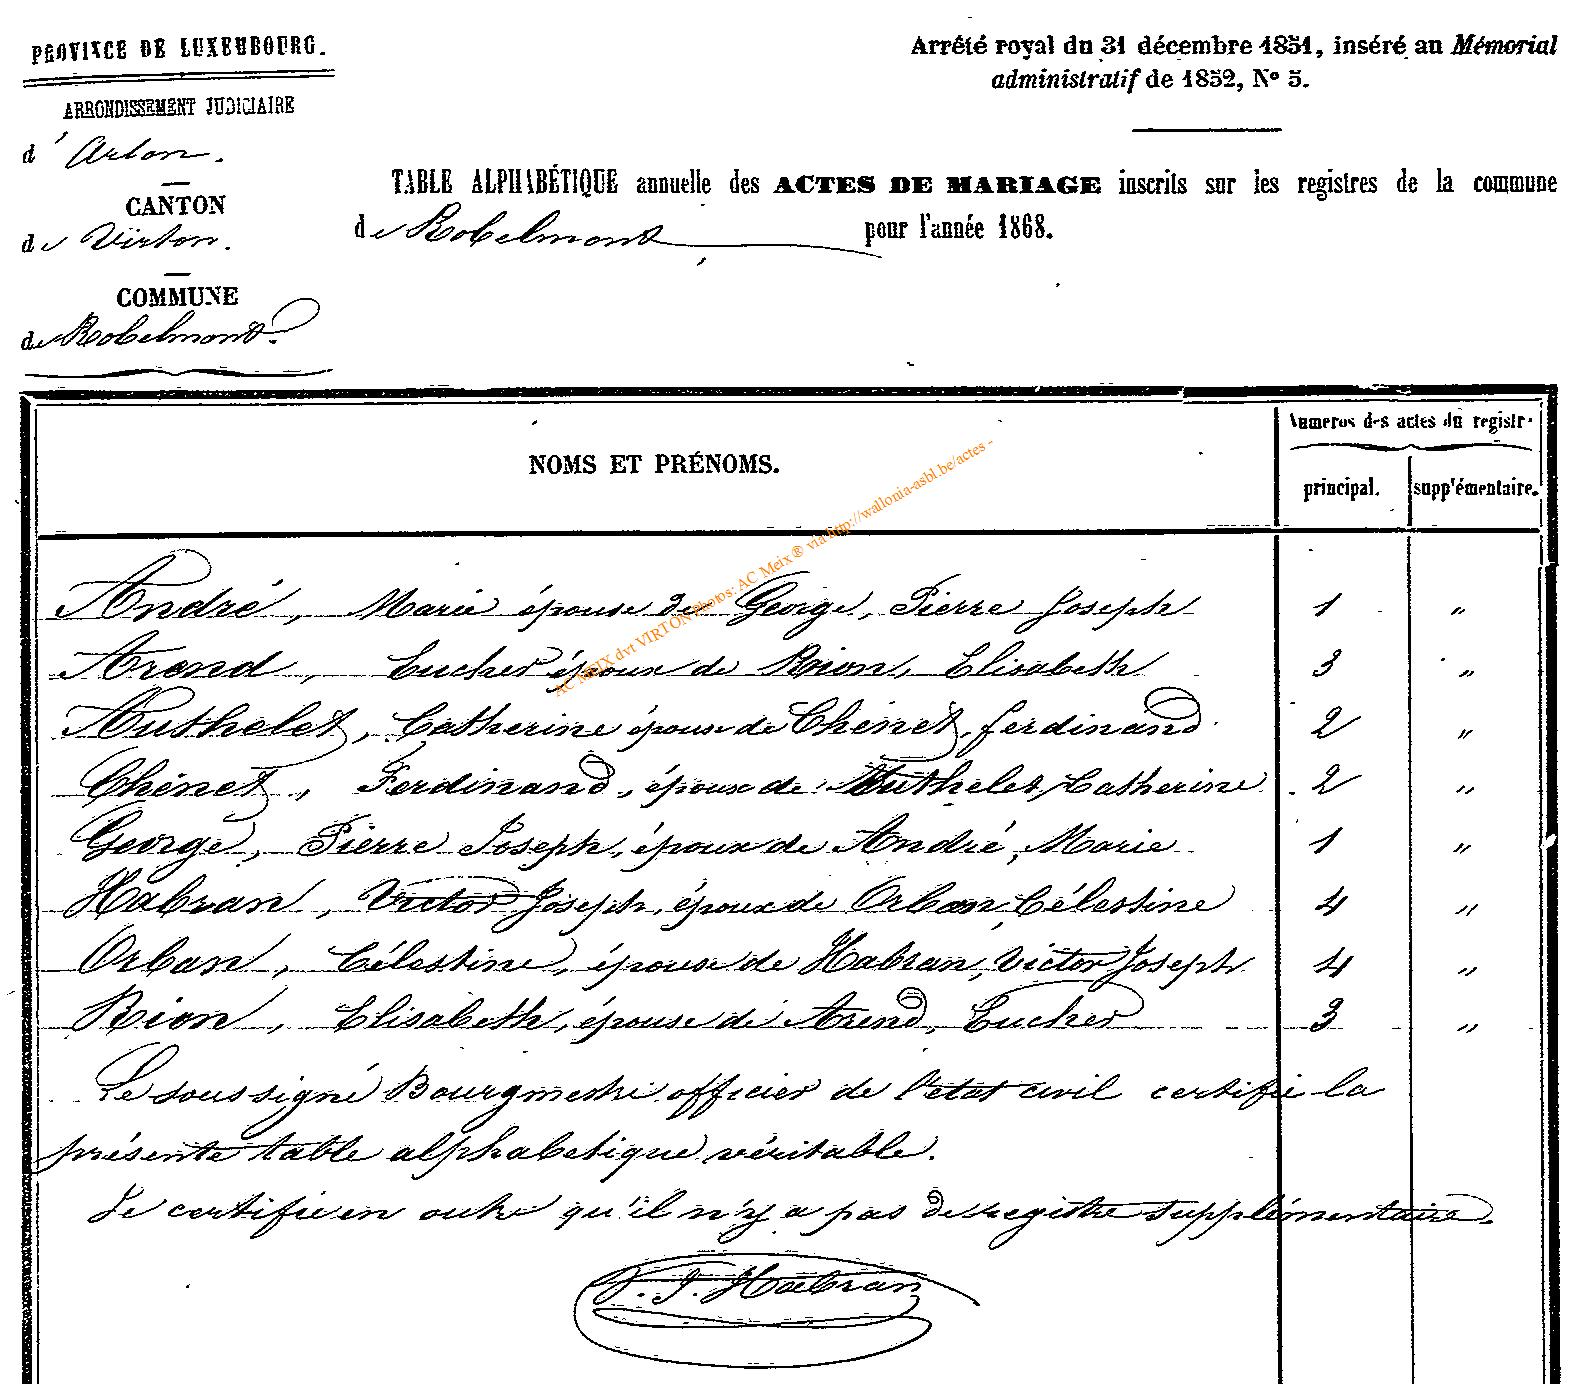 PROVINCE DE LUXEMBOURG.
ARRONDISSEMENT JUDICIAIRE
d'Arlon.
CANTON
de Virton.
COMMUNE
de Robelmont.
Arrêté royal du 31 décembre 1851, inséré au Mémorial
administratif de 1852, No 5.
TABLE ALPHABÉTIQUE annuelle des ACTES DE MARIAGE inscrits sur les registres de la commune
de Robelmont pour l'année 1868.
NOMS ET PRÉNOMS.
Numéros des actes du registre
principal. supplémentaire.
André, Marie épouse de George, Pierre Joseph 1 "
Arend, Eucher époux de Rion, Elisabeth 3 "
Authelet, Catherine épouse de Chénet, ferdinand 2 "
Chénet, Ferdinand, époux de Authelet, Catherine 2 "
George, Pierre Joseph, époux de André, Marie 1 "
Habran, Victor Joseph, époux de Orban Célestine 4 "
Orban, Célestine, épouse de Habran, Victor Joseph 4 "
Rion, Elisabeth, épouse de Arend, Eucher 3 "
Le soussigné Bourgmestre officier de l'etat civil certifie la
présente table alphabetique véritable.
Je certifie en outre qu'il n'y a pas de registre supplémentaire.
J. Habran
AC MEIX dvt VIRTON Photos: AC Meix ® via http://wallonia-asbl.be/actes -